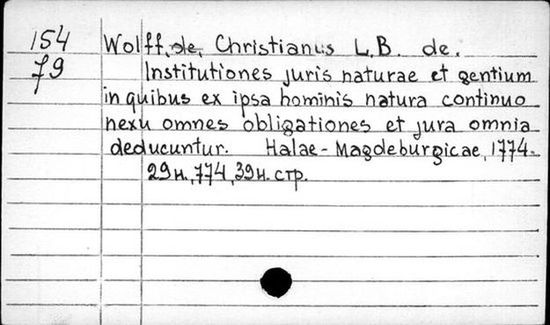 154 Wolff, de, Christianus L.B. de.
79 Institutiones juris naturae et gentium
in quibus ex ipsa hominis natura continuo
nexu omnes obligationes et jura omnia
deducuntur. Halae-Magdeburgicae, 1774.
29н., 774, 39н. стр.